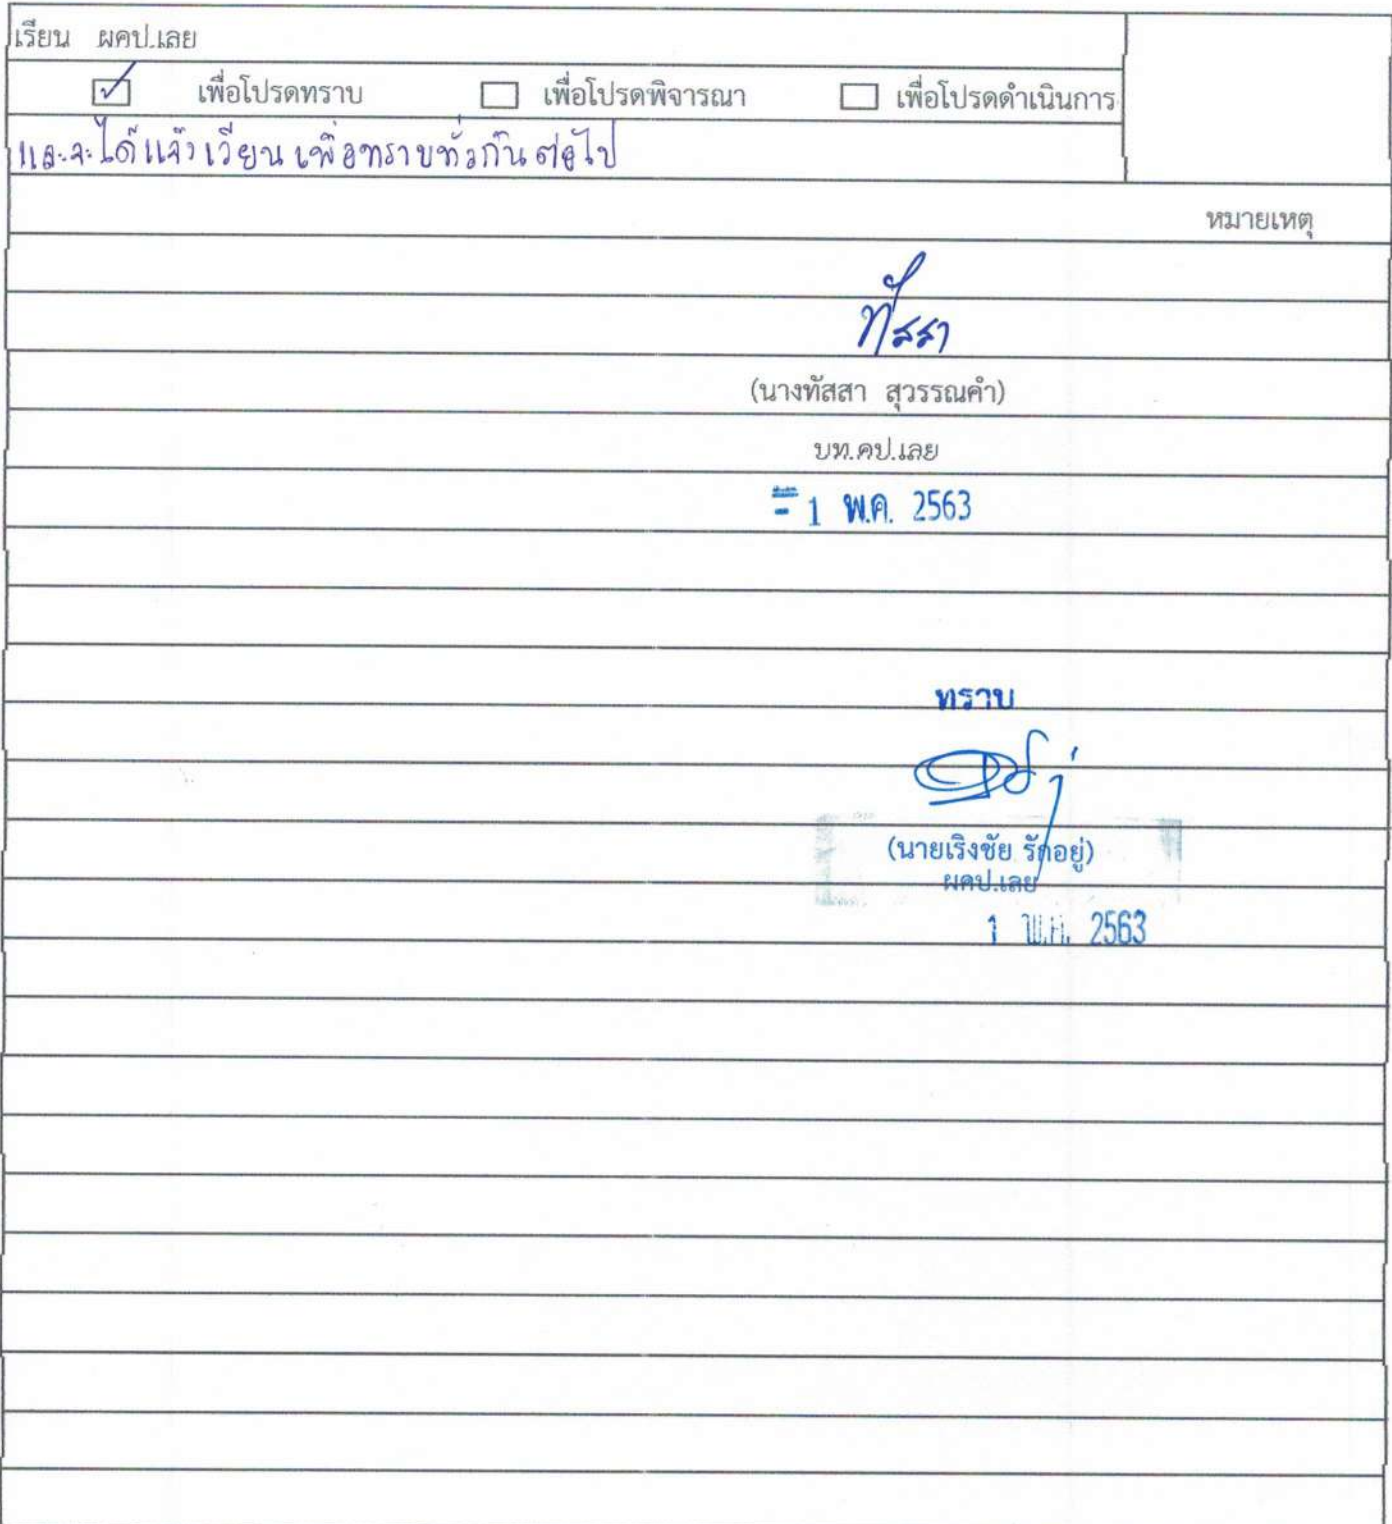 เรียน ผคป.เลย
☑ เพื่อโปรดทราบ ☐ เพื่อโปรดพิจารณา ☐ เพื่อโปรดดำเนินการ
และจะได้แจ้งเวียนเพื่อทราบทั่วกันต่อไป
หมายเหตุ
ทัสสา
(นางทัสสา สุวรรณคำ)
บท.คป.เลย
- 1 พ.ค. 2563
ทราบ
(นายเริงชัย รักอยู่)
ผคป.เลย
1 พ.ค. 2563